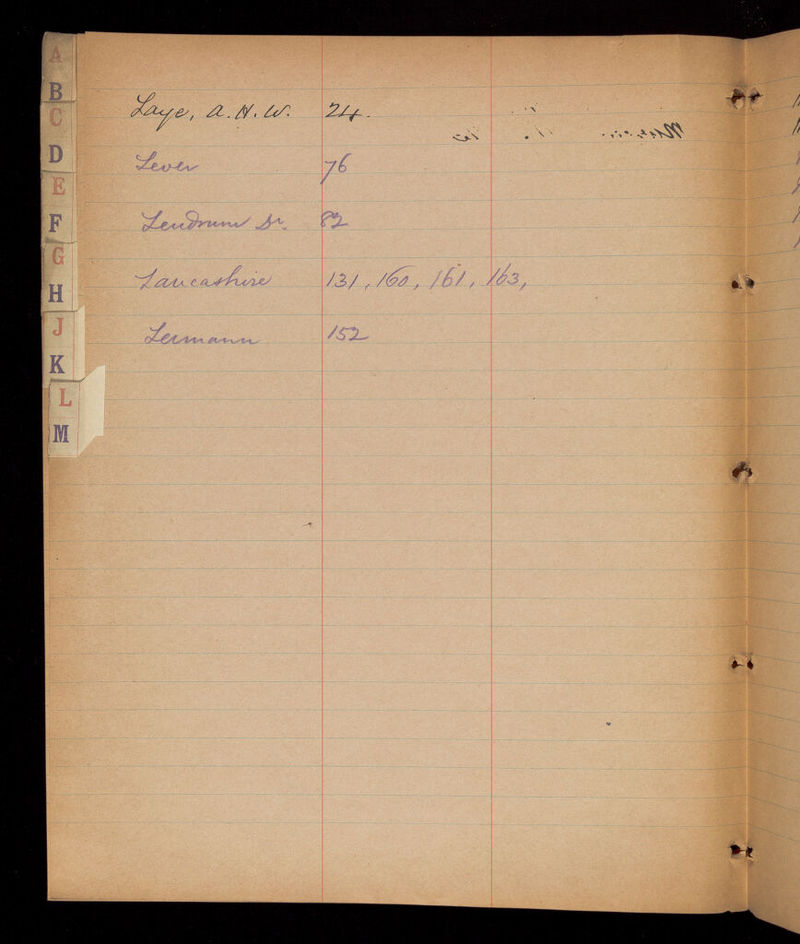 A
B
C
D
E
F
G
H
J
K
L
M
Laye, A. H. W. 24.
Lever 76
Lendrum Dr. 82
Lancashire 131, 160, 161, 163,
Lermann 152